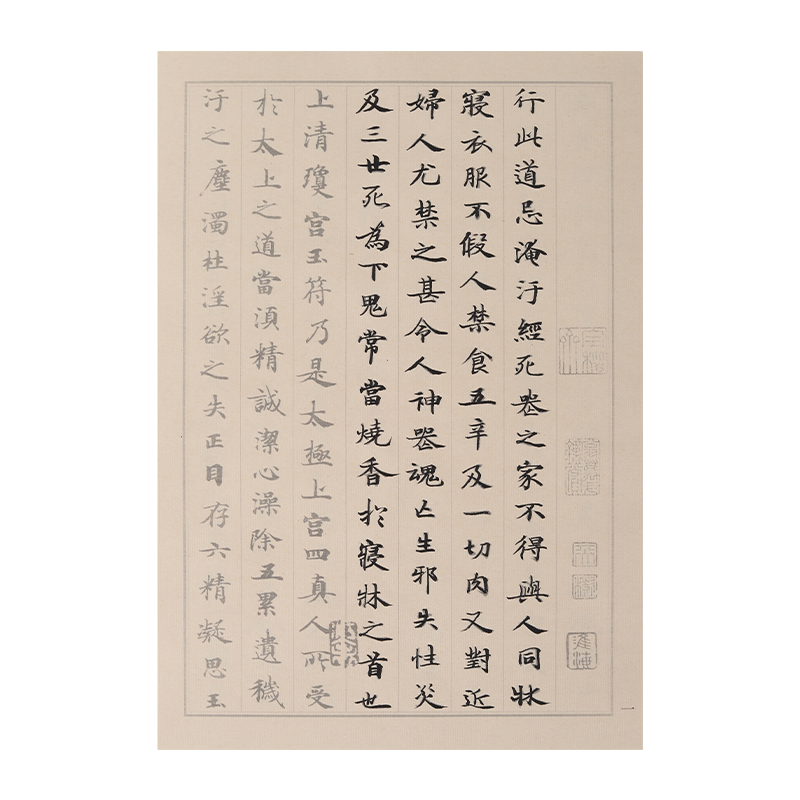 行此道忌淹汙經死喪之家不得與人同牀
寢衣服不假人禁食五辛及一切肉又對近
婦人尤禁之甚令人神喪魂亡生邪失性災
及三世死為下鬼常當燒香於寢牀之首也
上清瓊宮玉符乃是太極上宮四真人所受
於太上之道當須精誠潔心澡除五累遺穢
汙之塵濁杜淫欲之失正目存六精凝思玉
一